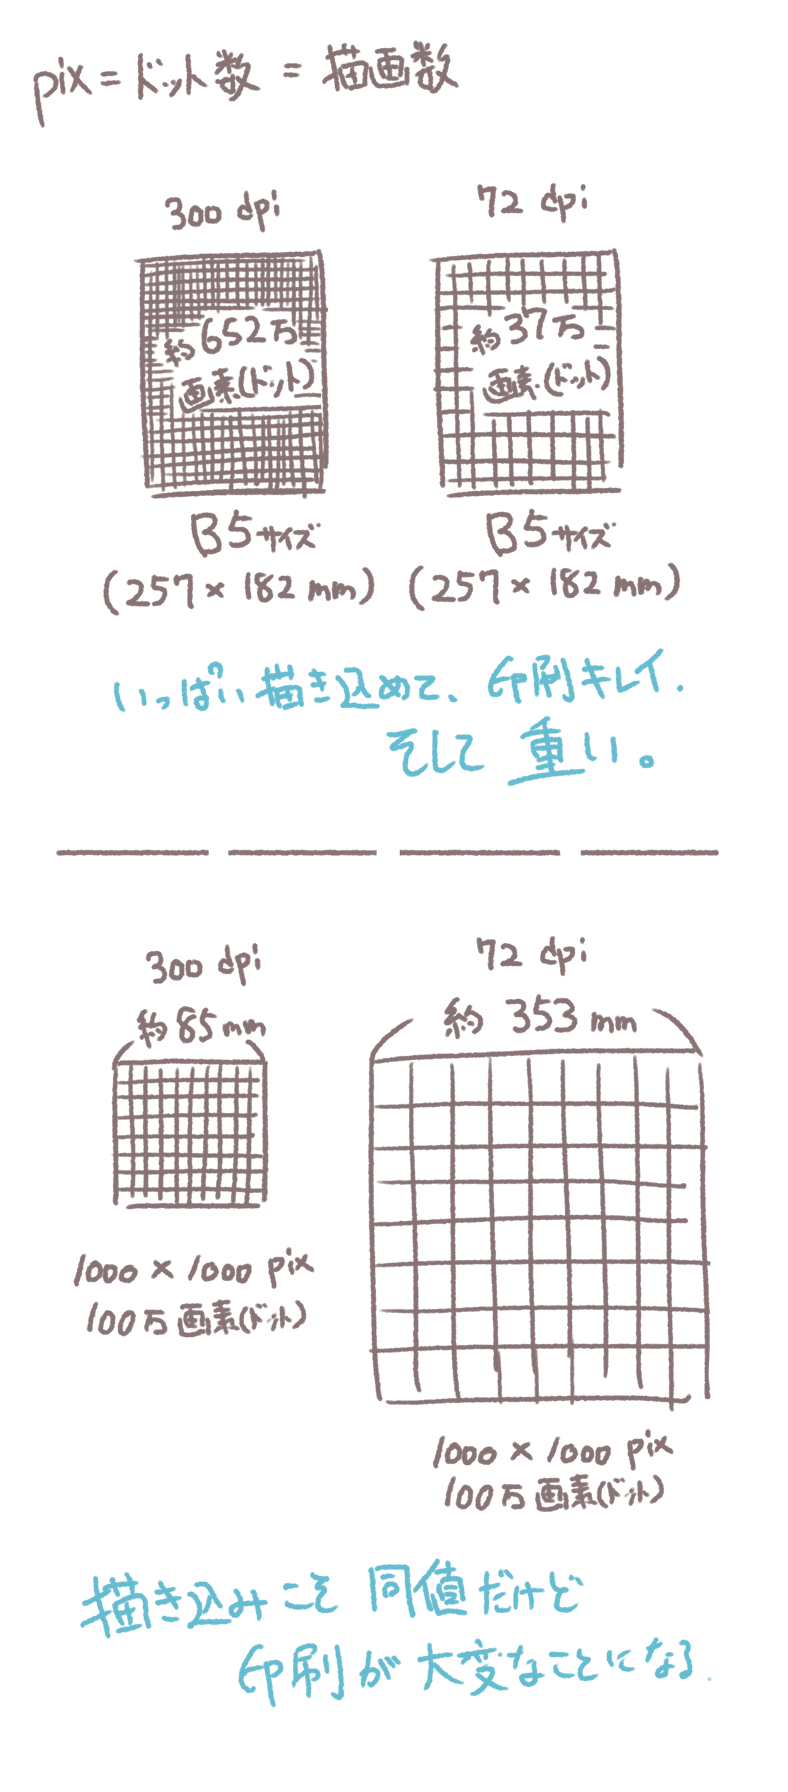 pix=ドット数=描画数
300 dpi
72 dpi
約652万
画素(ドット)
約37万
画素(ドット)
B5サイズ
(257×182mm)
B5サイズ
(257×182mm)
いっぱい描き込めて、印刷キレイ.
そして 重い。
300 dpi
約85mm
1000×1000 pix
100万画素(ドット)
72 dpi
約353mm
1000×1000 pix
100万画素(ドット)
描き込みこそ 同値だけど
印刷が大変なことになる.